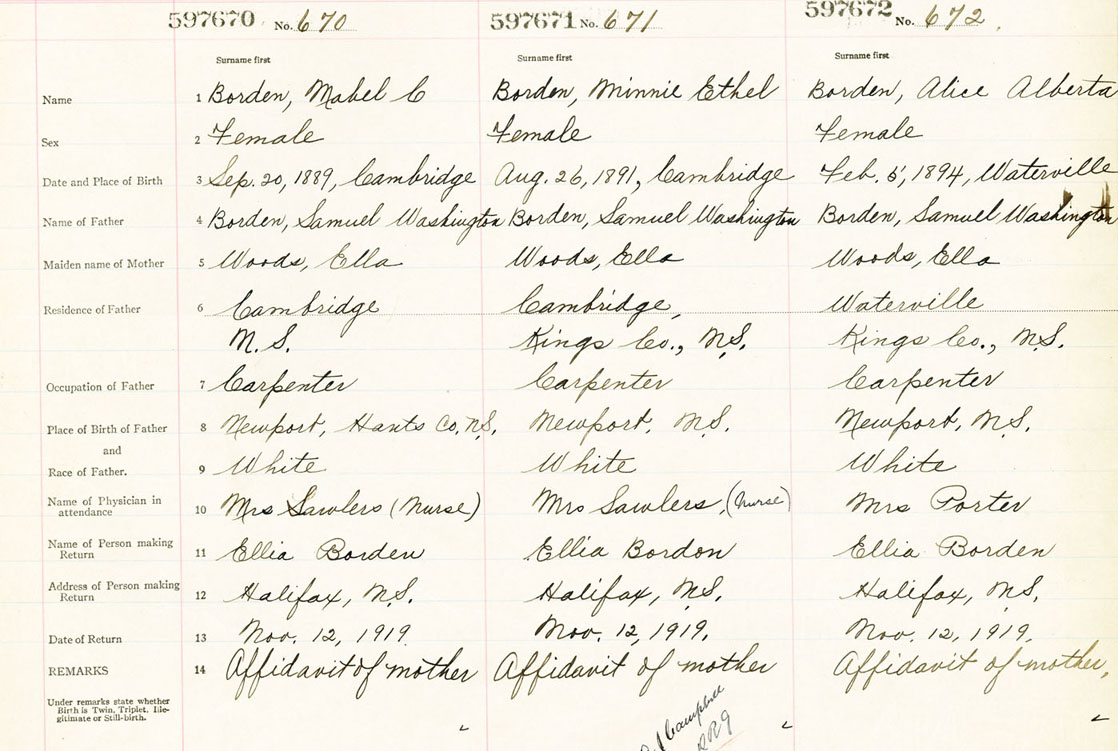 597670 No. 670 597671 No. 671 597672 No. 672
Surname first Surname first Surname first
Name 1 Borden, Mabel C Borden, Minnie Ethel Borden, Alice Alberta
Sex 2 Female Female Female
Date and Place of Birth 3 Sep. 20, 1889, Cambridge Aug. 26, 1891, Cambridge Feb. 5, 1894, Waterville
Name of Father 4 Borden, Samuel Washington Borden, Samuel Washington Borden, Samuel Washington
Maiden name of Mother 5 Woods, Ella Woods, Ella Woods, Ella
Residence of Father 6 Cambridge Cambridge, Waterville
N.S. Kings Co., N.S. Kings Co., N.S.
Occupation of Father 7 Carpenter Carpenter Carpenter
Place of Birth of Father 8 Newport, Hants Co, N.S. Newport, N.S. Newport, N.S.
and
Race of Father. 9 White White White
Name of Physician in
attendance 10 Mrs Sawlers (Nurse) Mrs Sawlers, (Nurse) Mrs Porter
Name of Person making
Return 11 Ellia Borden Ellia Bordon Ellia Borden
Address of Person making
Return 12 Halifax, N.S. Halifax, N.S. Halifax, N.S.
Date of Return 13 Nov. 12, 1919 Nov. 12, 1919. Nov. 12, 1919.
REMARKS 14 Affidavit of mother Affidavit of mother Affidavit of mother,
Under remarks state whether
Birth is Twin, Triplet, Ille-
gitimate or Still-birth.
Campbell